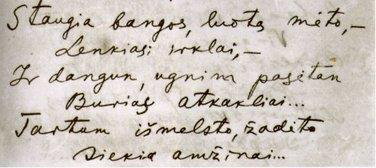 Staugia bangos, luotą mėto, –
Lenkiasi irklai, –
Ir dangun, ugnim pasėtan
Burias atkakliai...
Tartum išmelsto, žadėto
Siekia amžinai...